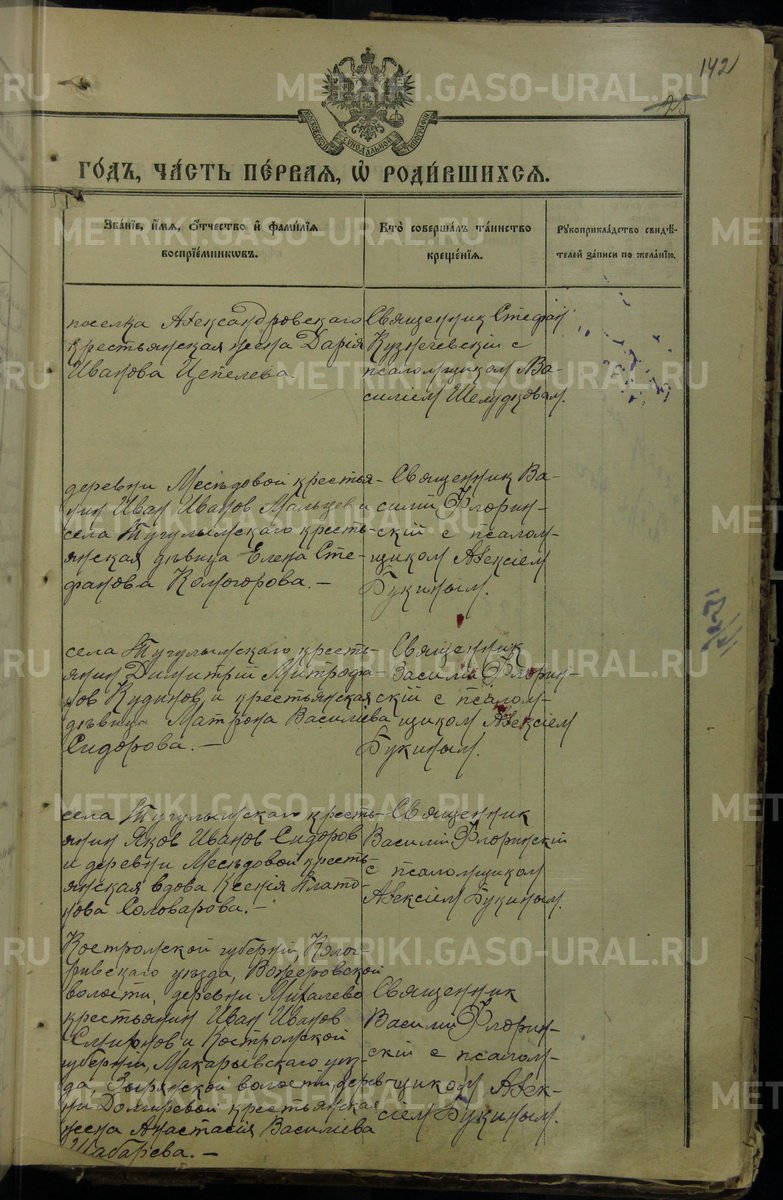 142
25
МОСКОВСКОЙ СѴНОДАЛЬНОЙ ТИПОГРАФІИ
ГО́ДЪ, ЧА́СТЬ ПЕ́РВАЯ, Ѡ РОДИ́ВШИХСЯ.
ЗВА́НІЕ, И́МЯ, О́ТЧЕСТВО И҆ ФАМИ́ЛІЯ
ВОСПРІЕ́МНИКѠВЪ.
КТО̀ СОВЕРША́ЛЪ ТА́ИНСТВО
КРЕЩЕ́НІЯ.
РУКОПРИКЛА́ДСТВО СВИДѢ́-
ТЕЛЕЙ ЗА́ПИСИ ПО ЖЕЛА́НІЮ.
поселка Александровскаго
крестьянская жена Дарія
Иванова Цепелева
Священник Стефан
Кузнечевскій с
псаломщиком Ва-
силіем Шелудковым.
деревни Месѣдовой крестья-
нин Иван Иванов Мальцев и
села Тугулымскаго кресть-
янская дѣвица Елена Сте-
фанова Комогорова. —
Священник Ва-
силій Флорин-
скій с псалом-
щиком Алексіем
Букиным.
села Тугулымскаго кресть-
янин Димитрій Митрофа-
нов Кудинов и крестьянская
дѣвица Матрона Василіева
Сидорова. —
Священник
Василій Флорин-
скій с псалом-
щиком Алексіем
Букиным.
села Тугулымскаго кресть-
янин Яков Иванов Сидоров
и деревни Месѣдовой кресть-
янская вдова Ксенія Плато-
нова Соловарова. —
Священник
Василій Флоринскій
с псаломщиком
Алексіем Букиным.
Костромской губерніи, Колог-
ривскаго уѣзда,
волости, деревни Михалево
крестьянин Иван Иванов
Смирнов и Костромской
губерніи, Макарьевскаго уѣз-
да, волости, дерев-
ни крестьянская
жена Анастасія Василіева
Шабарева. —
Священник
Василій Флорин-
скій с псалом-
щиком Алек-
сіем Букиным.
METRIKI.GASO-URAL.RU